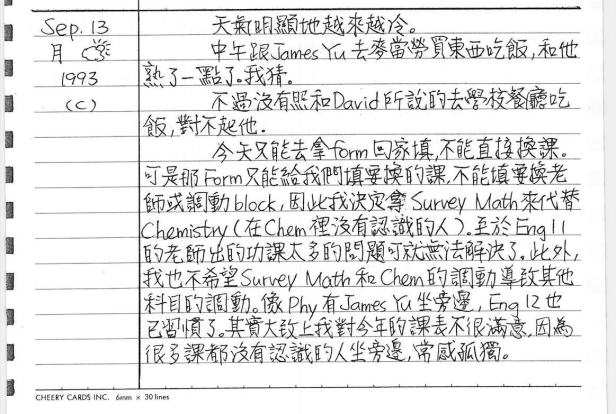 Sep. 13
月
1993
(C)
天氣明顯地越來越冷。
中午跟James Yu去麥當勞買東西吃飯,和他
熟了一點了。我猜。
不過沒有照和David所說的去學校餐廳吃
飯,對不起他.
今天又能去拿form回家填,不能直接換課。
可是那Form又能給我們填要換的課,不能填要換老
師或調動block,因此我決定拿Survey Math來代替
Chemistry(在Chem裡沒有認識的人)。至於Eng 11
的老師出的功課太多的問題可就無法解決了。此外,
我也不希望Survey Math和Chem的調動導致其他
科目的調動。像Phy有James Yu坐旁邊,Eng 12也
已習慣了。其實大致上我對今年的課表不很滿意,因為
很多課都沒有認識的人坐旁邊,常感孤獨。
CHEERY CARDS INC. 6mm × 30 lines